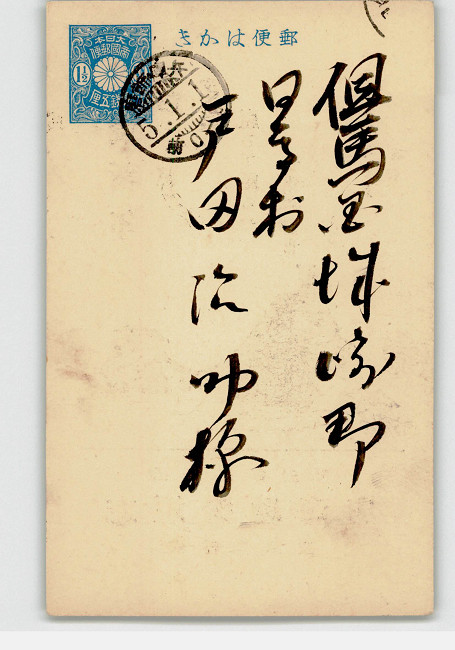 郵便はかき
大日本
帝國郵便
1½
五厘
5.1.1
但馬国城崎郡
日高村
戸田治助様